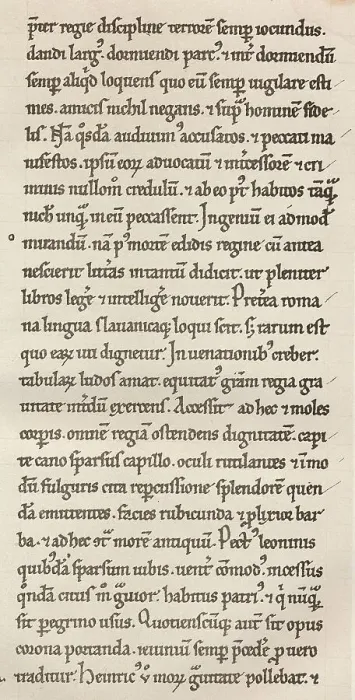 p̄ter regie discipline terrorē semp̲ iocundus.
dandi larg⁹. dormiendi parc⁹. ⁊ int̄ dormiendū
semp̲ aliq̇d loquens quo eū semp̲ uigilare esti
mes. amicis nichil negans. ⁊ sup̲ᵃ hominē fide
lis. Nā q°sdā audiuim⁹ accusatos. ⁊ peccati ma
nifestos. ipsū eoꝝ aduocatū ⁊ int̄cessorē ⁊ cri
minis nullom̊ credulū. ⁊ ab eo p⁹t habitos tāq̄ᷓ
nich̄ unq̄ᷓ in eū peccassent. Ingeniū ei admod̄
mirandū. nā p⁹ mortē edidis regine cū antea
nescierit litt̄as intantū didicit. ut pleniter
libros leg̲e ⁊ intellig̲e nouerit. Pret̲ea roma
na lingua slauanicaq; loqui scit. s; rarum est
quo eaꝝ uti dignetur. In uenationib⁹ creber.
tabulaꝝ ludos amat. equitat⁹ gr̄am regia gra
uitate int̄dū exercens. Accessit ad hec ⁊ moles
corp̲is. omnē regiā ostendens dignitatē. capi
te cano sparsus capillo. oculi rutilantes ⁊ īmo
dū fulguris cita rep̲cussione splendorē quen
dā emittentes. facies rubicunda ⁊ ꝓlixior bar
ba. ⁊ ad hec 9t̄ᷓ morē antiquū. Pect⁹ leoninis
quib⁹dā sparsum iubis. uent̄ cōmod⁹. incessus
q̊ndā citus m̊ gᷓuior. habitus patri⁹. ⁊ q̇ nūq̄ᷓ
sit p̲egrino usus. Quotienscūq; aut̄ sit opus
corona portanda. ieiuniū semp̲ p̄ced̲e ꝓ uero
traditur. Heinric⁹ v̊ moꝝ gᷓuitate pollebat. ⁊